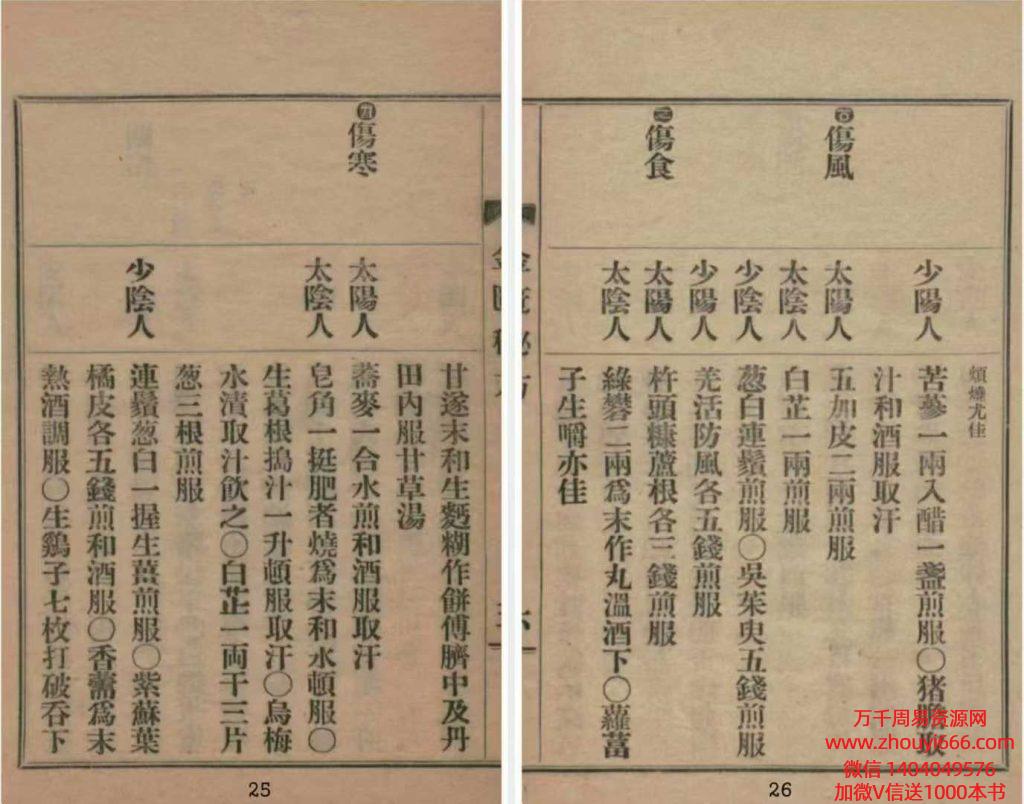 甘遂末和生麪糊作餅傅臍中及丹
田內服甘草湯
傷寒 太陽人 蕎麥一合水煎和酒服取汗
太陰人 皂角一挺肥者燒爲末和水頓服〇
生葛根搗汁一升頓服取汗〇烏梅
水漬取汁飲之〇白芷一両干三片
葱三根煎服
少陰人 連鬚葱白一握生薑煎服〇紫蘇葉
橘皮各五錢煎和酒服〇香薷爲末
熱酒調服〇生鷄子七枚打破吞下
25
燒尤佳
少陽人 苦蔘一兩入醋一盞煎服〇猪膽取
汁和酒服取汗
傷風 太陽人 五加皮二兩煎服
太陰人 白芷一兩煎服
少陰人 葱白連鬚煎服〇吳茱臾五錢煎服
少陽人 羌活防風各五錢煎服
傷食 太陽人 杵頭糠蘆根各三錢煎服
太陰人 綠礬二兩爲末作丸溫酒下〇蘿葍
子生嚼亦佳
26
万千周易资源网
www.zhouyi666.com
微信 1404049576
加微V信送1000本书